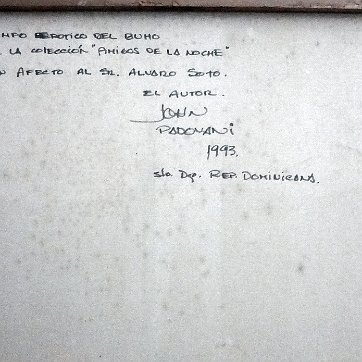 EROTICO DEL BUHO
LA COLECCIÓN "AMIGOS DE LA NOCHE"
AFECTO AL SR. ALVARO SOTO.
EL AUTOR.
JOHN
PADOVANI
1993.
Sto. Dgo. REP. DOMINICANA.